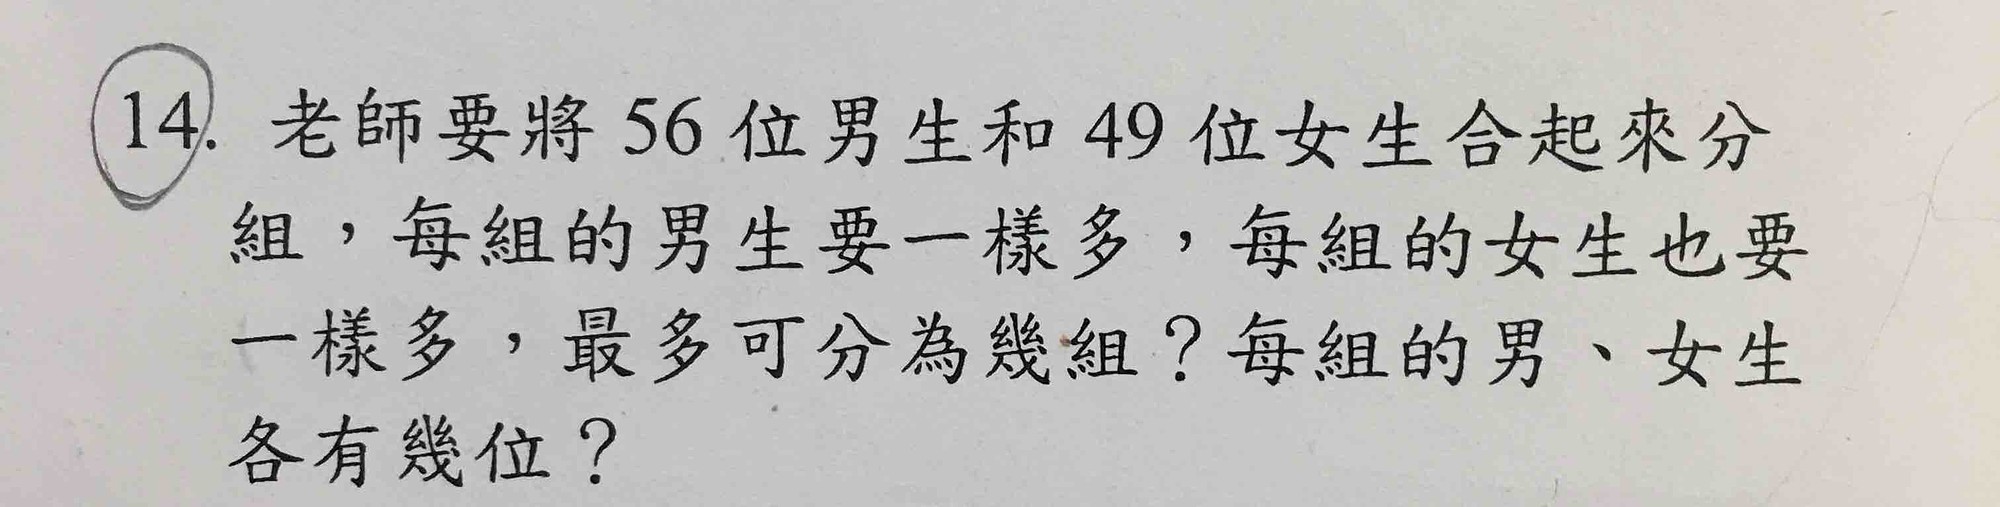 14. 老師要將 56 位男生和 49 位女生合起來分
組，每組的男生要一樣多，每組的女生也要
一樣多，最多可分為幾組？每組的男、女生
各有幾位？